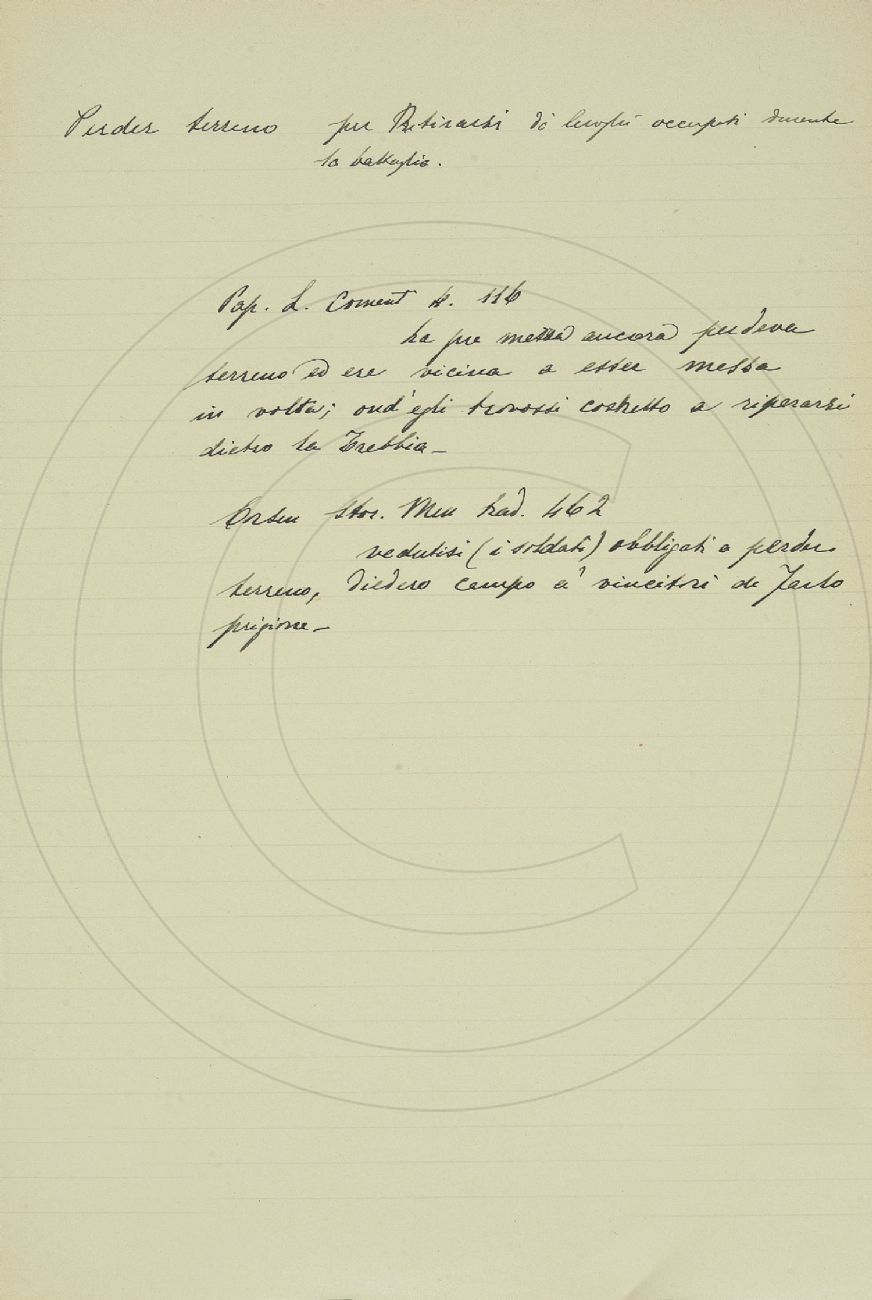 Perder terreno per Ritirarsi di luoghi occupati durante
la battaglia.
Pap. L. Coment 4. 116
la pre messa ancora perdeva
terreno ed ere vicina a esser messa
in volta; ond'egli trovossi costretto a ripararsi
dietro la Trebbia_
Corsin Stor. Min trad. 462
vedutisi (i soldati) obbligati a perder
terreno, diedero campo a' vincitori di farlo
prigione_